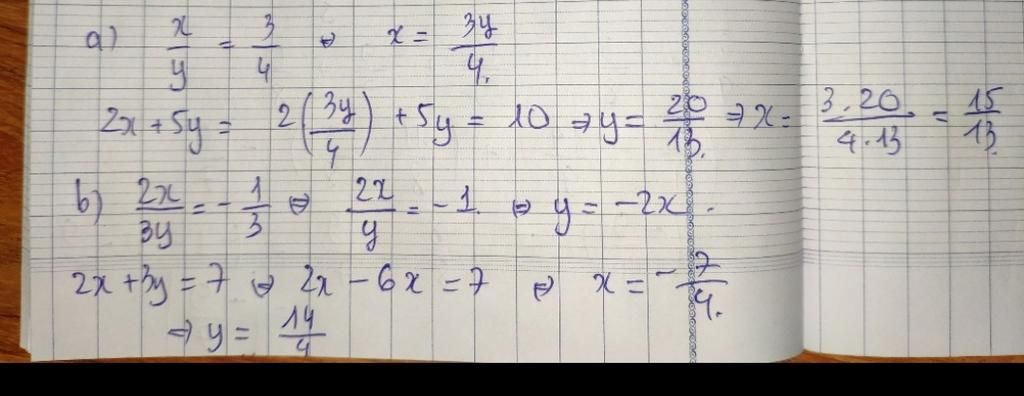 a) x/y = 3/4 ⇔ x = 3y/4.
2x + 5y = 2(3y/4) + 5y = 10 ⇒ y = 20/13. ⇒ x = 3.20/4.13 = 15/13.
b) 2x/3y = -1/3 ⇔ 2x/y = -1. ⇔ y = -2x.
2x + 3y = 7 ⇔ 2x - 6x = 7 ⇔ x = -7/4.
⇒ y = 14/4